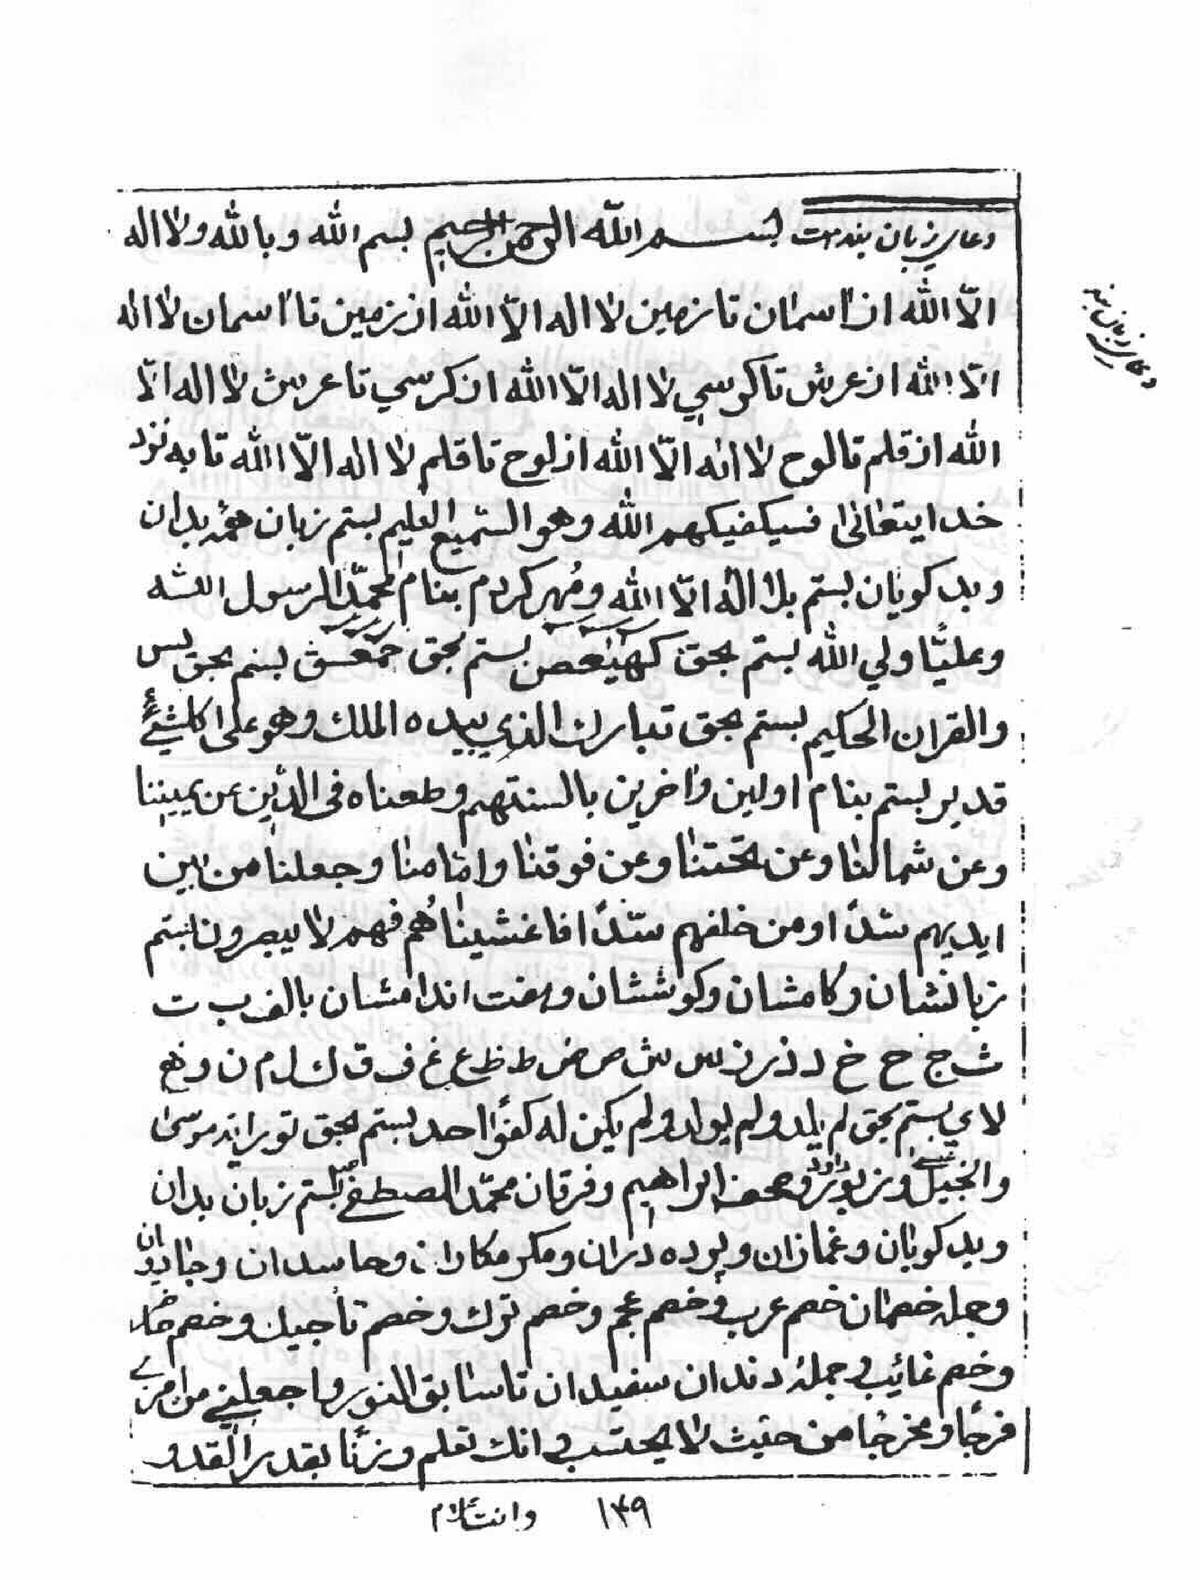 دعای زبان بند است بسم الله الرحمن الرحیم بسم الله و بالله ولا اله
الّا الله از اسمان تا زمین لا اله الّا الله از زمین تا اسمان لا اله
الّا الله از عرش تا کرسي لا اله الّا الله از کرسي تا عرش لا اله الّا
الله از قلم تا لوح لا اله الّا الله از لوح تا قلم لا اله الّا الله تا به نزد
خدایتعالیٰ فسیکفیکهم الله وهو السّمیع العلیم بستم زبان همۀ بدان
و بد کویان بستم بلا اله الّا الله و مُهر کردم بنام محمّد الرسول الله
و علیًّا ولي الله بستم بحق کهیٰعص بستم بحق حمعسق بستم بحق یس
والقران الحکیم بستم بحق تبارك الذي بیده الملك وهو علی کلشیٍٔ
قدیر بستم بنام اولین واخرین بالسنتهم وطعناه فی الدّین عن یمیننا
وعن شمالنا وعن تحتنا وعن فوقنا وامامنا وجعلنا من بین
ایدیهم سدًّا ومن خلفهم سدًّا فاغشیناهُم فهم لا یبصرون بستم
زبانشان و کامشان و کوششان و هفت اندامشان بالف ب ت
ث ج ح خ د ذ ر ز س ش ص ض ط ظ ع غ ف ق ك ل م ن و ه
لا ي بستم بحق لم یلد ولم یولد ولم یکن له کفوًا احد بستم بحق توراة موسیٰ
وانجیل عیسی و زبور داود و صحف ابراهیم و فرقان محمّد المصطفی بستم زبان بدان
و بد کویان و غمازان و پرده دران و مکر مکاران و حاسدان و جادوان
و جمله خصمان خصم عرب و خصم عجم و خصم ترك و خصم تاجیك و خصم
و خصم غائب و جملۀ دندان سفیدان تا سابق النور واجعلني من امري
فرجًا ومخرجًا من حیث لا یحتسب انك تعلم بقدر القدر
۱۴۹
دعای زبان بند